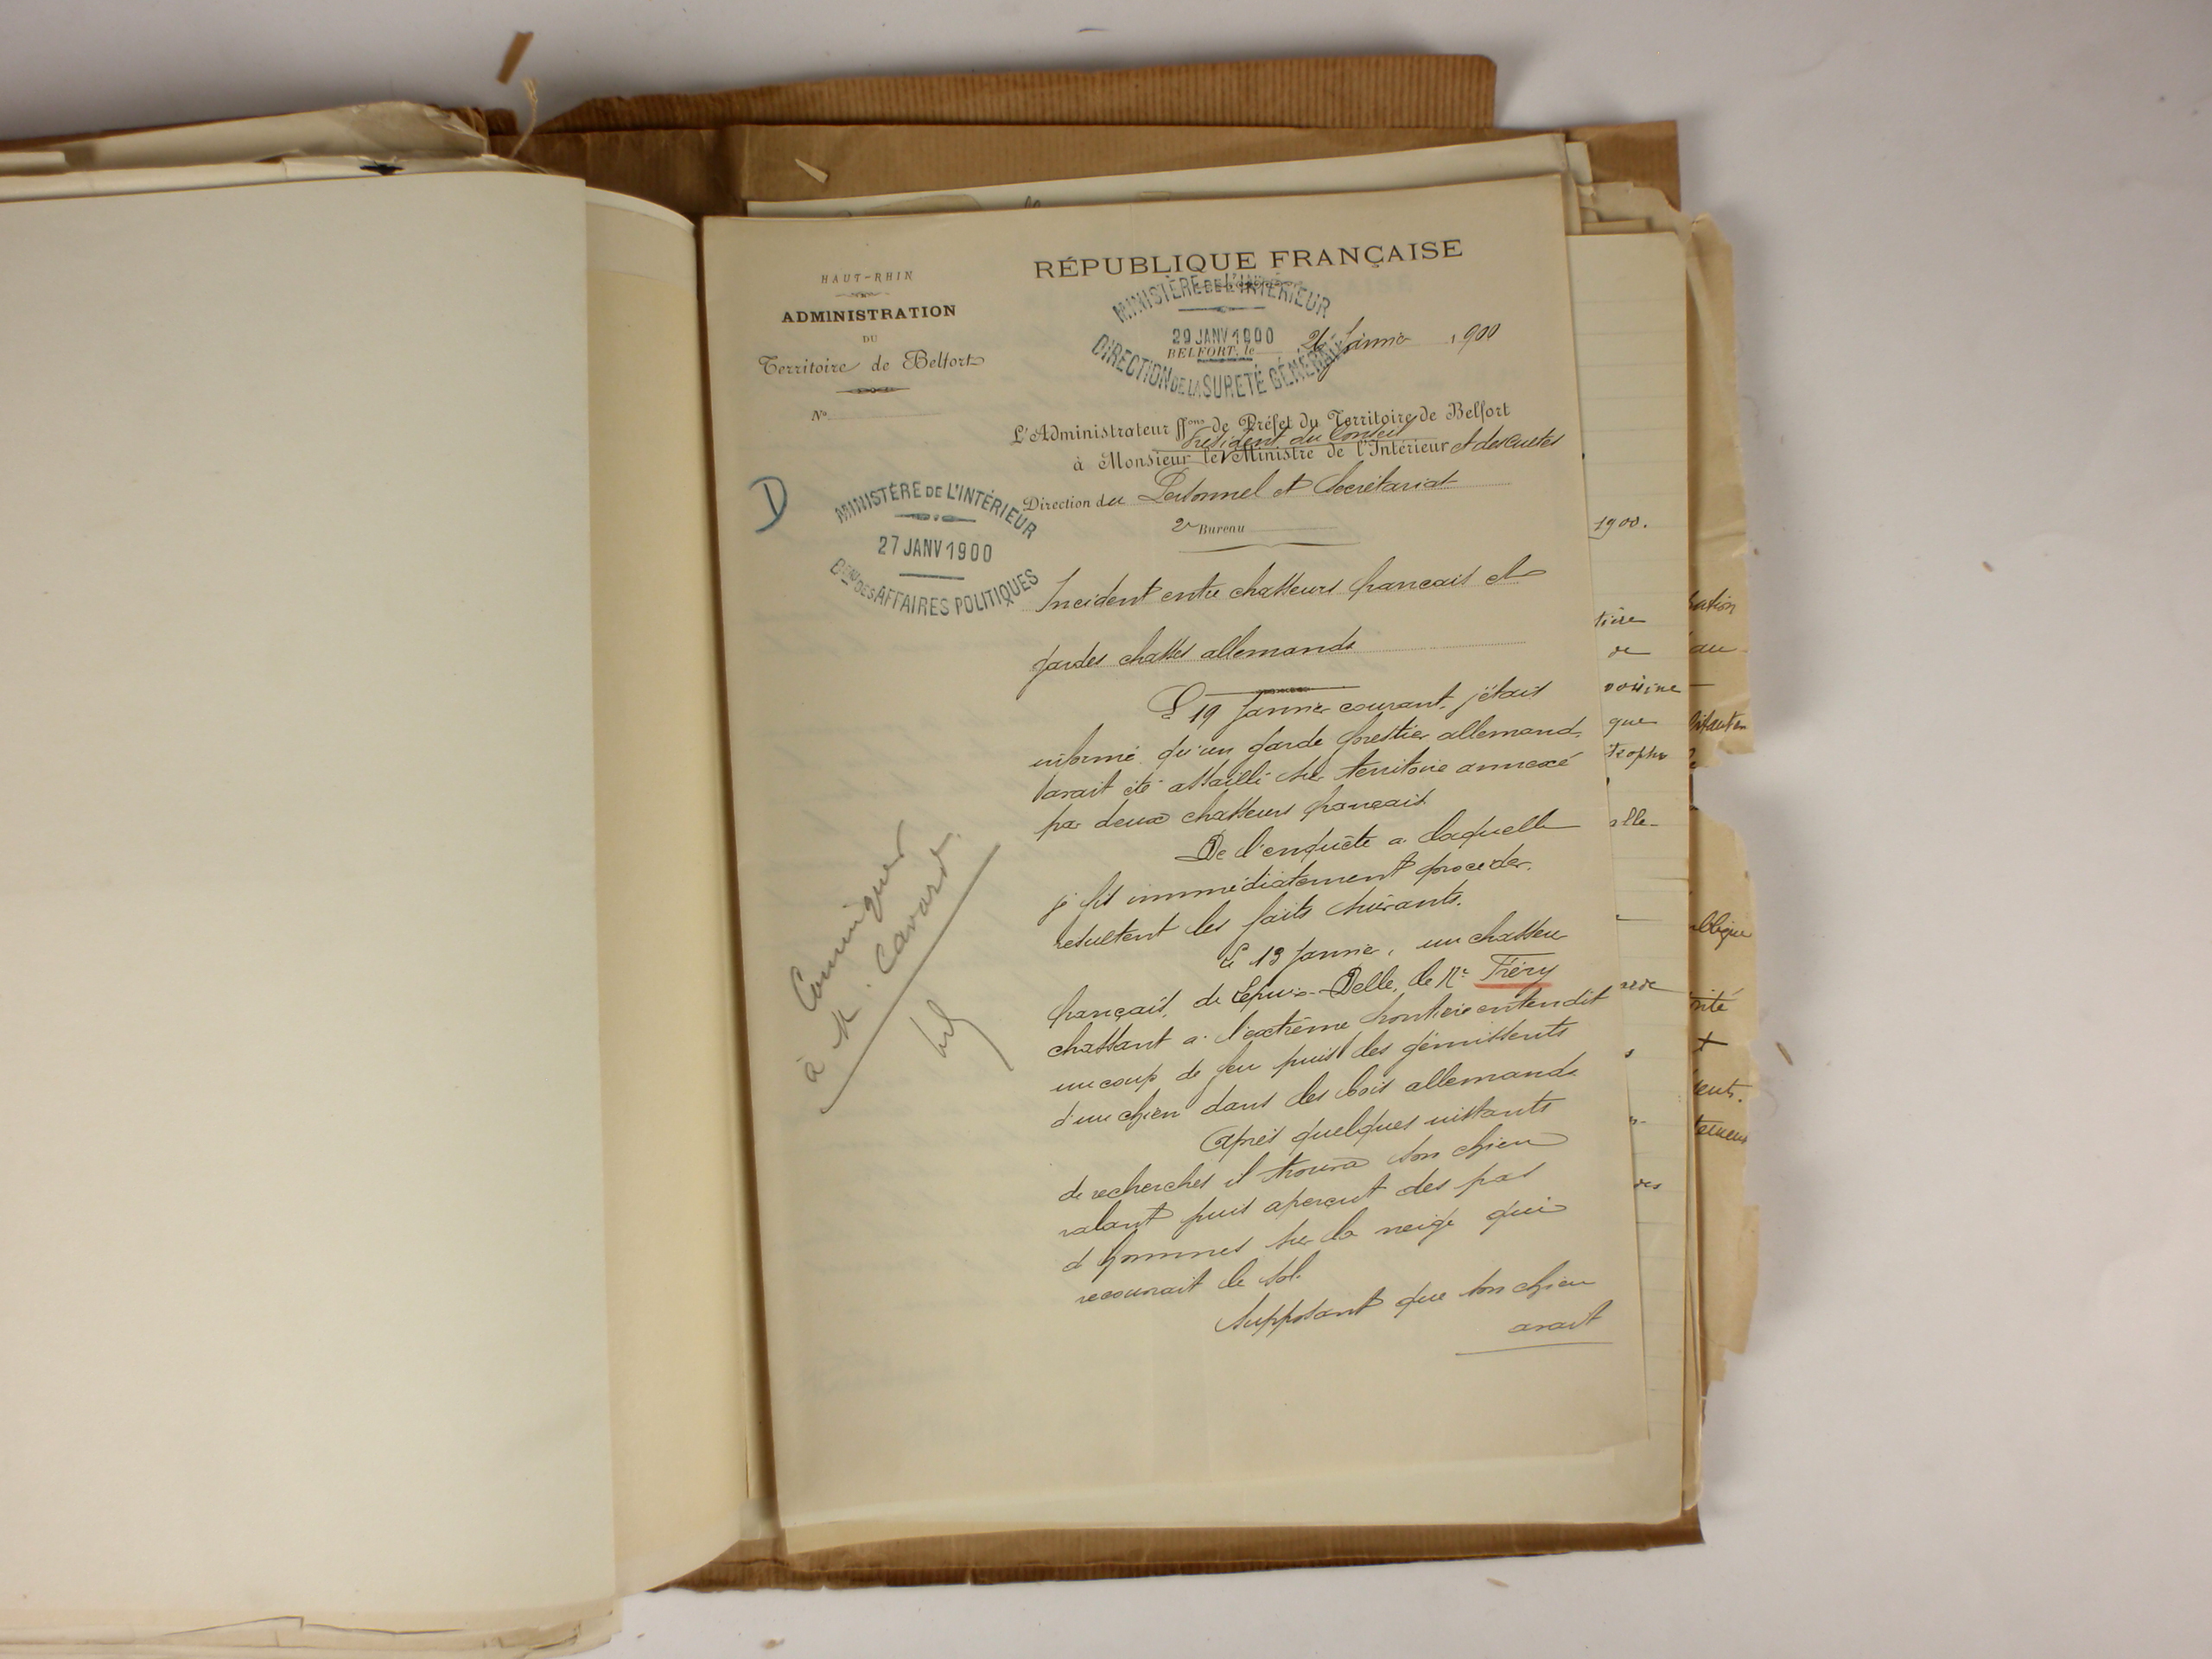 HAUT-RHIN
ADMINISTRATION
DU
Territoire de Belfort
No
RÉPUBLIQUE FRANÇAISE
MINISTÈRE DE L'INTÉRIEUR
29 JANV 1900
DIRECTION DE LA SURETÉ GÉNÉRALE
BELFORT, le 26 Janvier 1900
L'Administrateur ffons de Préfet du Territoire de Belfort
Président du Conseil
à Monsieur le Ministre de l'Intérieur et des Cultes
Direction du Personnel et Secrétariat
2e Bureau
D
MINISTÈRE DE L'INTÉRIEUR
27 JANV 1900
DES AFFAIRES POLITIQUES
Incident entre chasseurs francais et
gardes chasses allemands
Le 19 Janvier courant, j'étais
informé qu'un garde forestier allemand
avait été assailli sur territoire annexé
par deux chasseurs français.
De l'enquête a laquelle
je fis immédiatement procéder,
resultent les faits suivants.
Le 13 Janvier, un chasseur
français, de Lepuix-Delle, le Mr Fréry
chassant a l'extrême frontière entendit
un coup de feu puis les gémissents
d'un chien dans les bois allemands
Après quelques instants
de recherches il trouva son chien
ralant puis aperçut des pas
d'hommes sur la neige qui
recouvrait le sol.
Supposant que son chien
avait
Communiquer
à M. Cavard
1900.
tière
de
voisine
que
alle-
ration
au
ubligue
rité